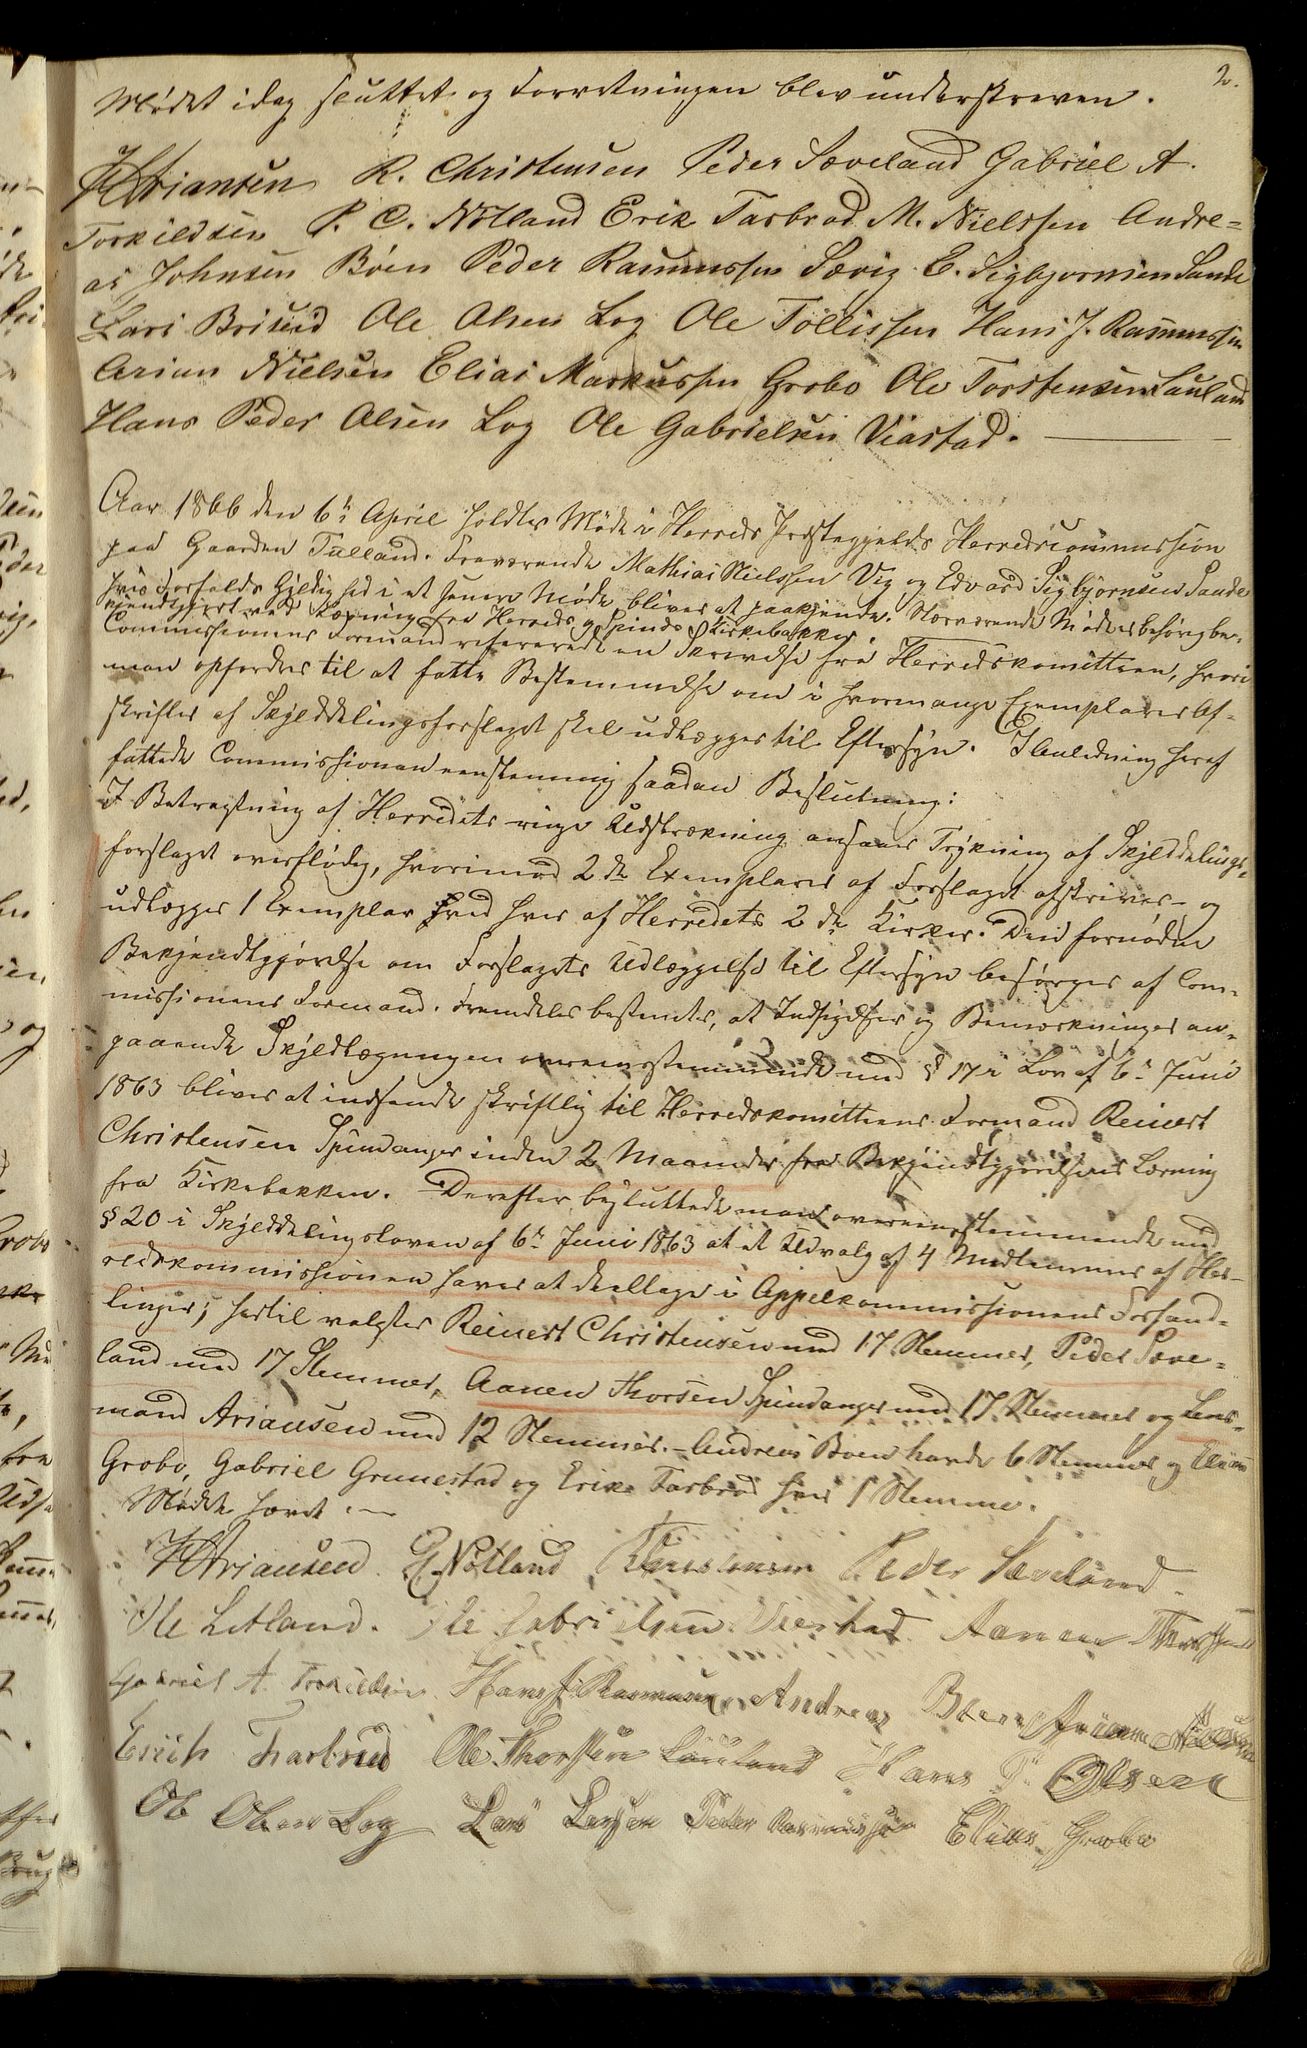 2.
Mödet idag sluttet og Forretningen blev underskreven.
HAriansen R. Christensen Peder Sæveland Gabriel A.
Torkildsen P. C. Nötland Erik Tarbrod M. Nielssen Andre=
as Johnsen Böen Peder Rasmussen Sævig E. Sigbjornsen Sande
Lars Briseid Ole Olsen Log Ole Tollissen Hans J. Rasmussen
Arian Nielsen Elias Markussen Grobo Ole Torstensen Lauland
Hans Peder Olsen Log Ole Gabrielsen Viastad.
Aar 1866 den 6te April holdtes Möde i Herreds Præstegjelds Herredscommission
paa Gaarden Tulland. Fraværende Mathias Nielssen Vig og Edvard Sigbjørnsen Sande
hvis Forfalds Gyldighed i et senere Möde bliver at paakjende. Nærværende Mödes behörig be-
kjendtgjort ved Læsning fra Herreds og Spinds Kirkebakker.
Commissionens Formand refererede en Skrivelse fra Herredskomitteen, hvori
man opfordres til at fatte Bestemmelse om i hvormange Exemplarer Af-
skrifter af Skylddelingsforslaget skal udlægges til Eftersyn. I Anledning heraf
fattede Commissionen eenstemmig saadan Beslutning:
I Betragtning af Herredets ringe Udstrækning ansees Trykning af Skylddelings-
forslaget overflödig, hvorimod 2de Exemplarer af Forslaget afskrives og
udlægges 1 Exemplar ved hver af Herredets 2de Kirker. Den fornödne
Bekjendtgjörelse om Forslagets Udlæggelse til Eftersyn besörges af Com-
missionens Formand. Fremdeles bestemtes, at Indsigelser og Bemærkninger an-
gaaende Skyldlægningen overensstemmende med § 17 i Lov af 6te Juni
1863 bliver at indsende skriftlig til Herredskomitteens Formand Reinert
Christensen Spindanger inden 2 Maaneder fra Bekjendtgjörelsens Læsning
fra Kirkebakken. Derefter besluttede man overeensstemmende med
§ 20 i Skylddelingsloven af 6te Juni 1863 at et Udvalg af 4 Medlemmer af Her-
redskommissionen haver at deeltage i Appelkommissionens Forhand-
linger; hertil valgtes Reinert Christensen med 17 Stemmer, Peder Sæve-
land med 17 Stemmer, Aanen Thorsen Spindanger med 17 Stemmer og Lens-
mand Ariansen med 12 Stemmer. – Andreas Boen havde 6 Stemmer og Elias
Grobo, Gabriel Grunestad og Erik Tarbrod hver 1 Stemme.
Mödet hævet. –
HAriansen Nötland RChristensen Peder Sæveland
Ole Letland. Ole Gabrielsen Viestad Aanen Thorssen
Gabriel A. Torkildsen Hans J. Rasmussen Andreas Boen Arian Nielsen
Erich Tharbrud Ole Thorsten Lauland Hans P. Olsen
Ole Olsen Log Lars Larsen Peder Rasmussen Elias Grobo